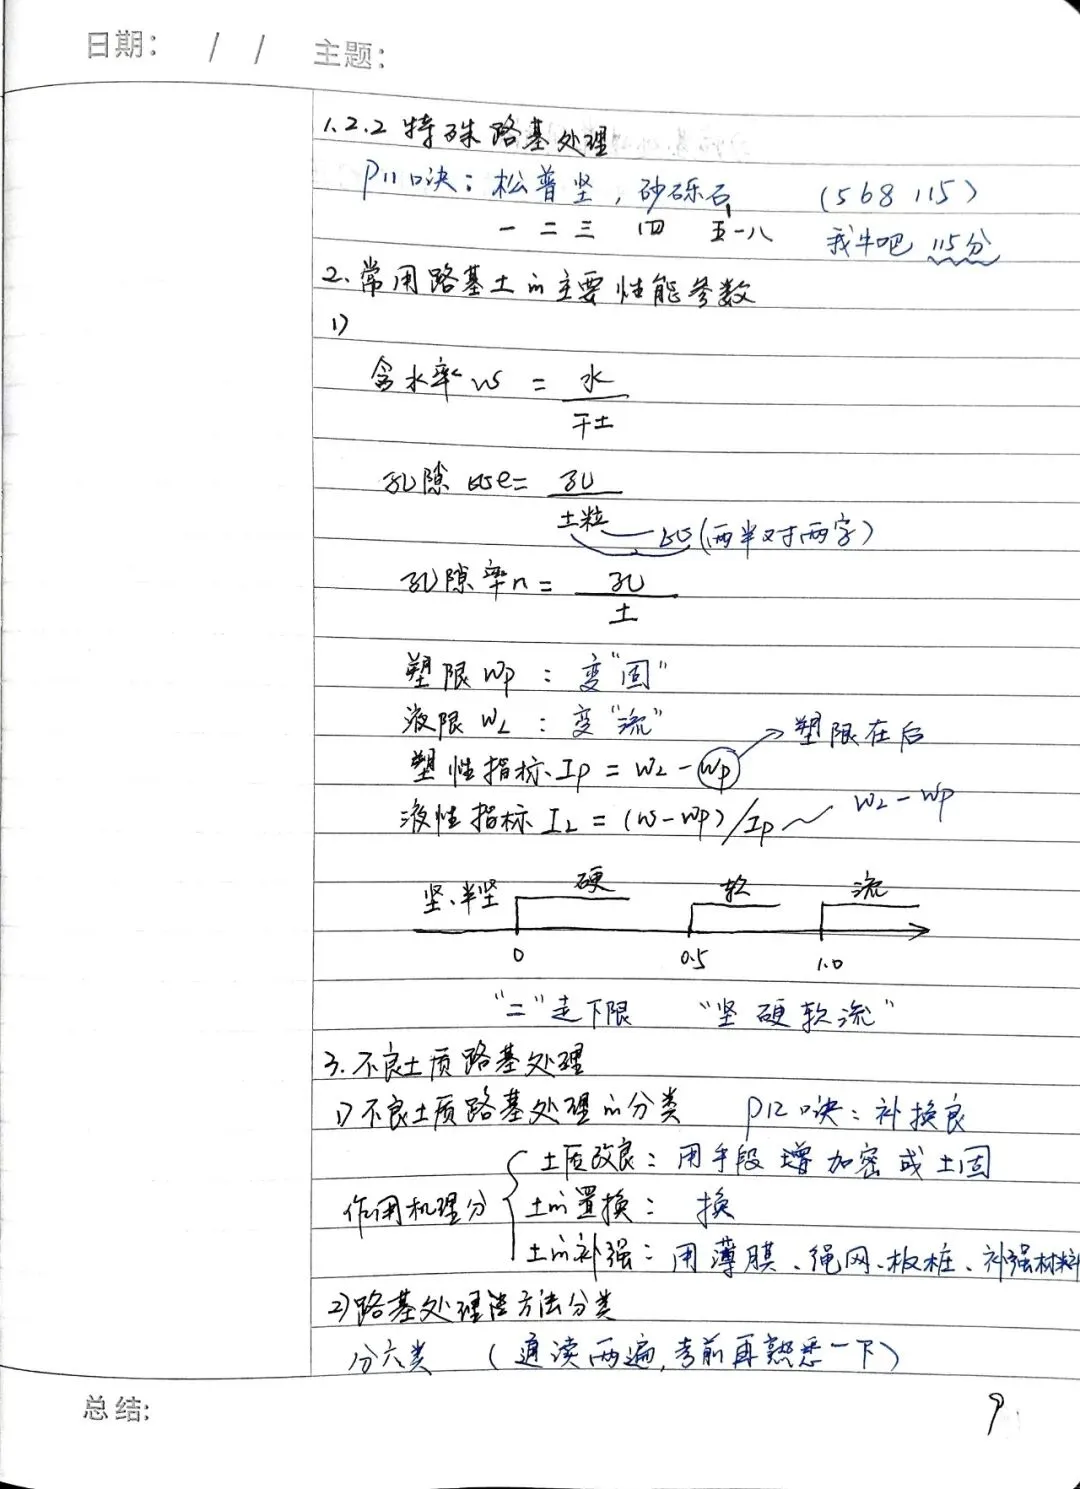 日期： / / 主题：
1.2.2 特殊路基处理
P11口诀：松普坚，砂砾石 （568 115）
一 二 三 四 五-八 我牛吧 115分
2.常用路基土的主要性能参数
1)
含水率w = 水/干土
孔隙比e = 孔/土粒 比（两半对两字）
孔隙率n = 孔/土
塑限Wp：变“固”
液限WL：变“流”
塑性指标Ip = WL - Wp → 塑限在后
液性指标IL = (w - Wp)/Ip WL - Wp
坚、半坚 硬 软 流
0 0.5 1.0
“=”走下限 “坚硬软流”
3.不良土质路基处理
1)不良土质路基处理的分类 P12口诀：补换良
土质改良：用手段增加密或土固
作用机理分 土的置换：换
土的补强：用薄膜、绳网、板桩、补强材料
2)路基处理按方法分类
分六类 （通读两遍，考前再熟悉一下）
总结：
9